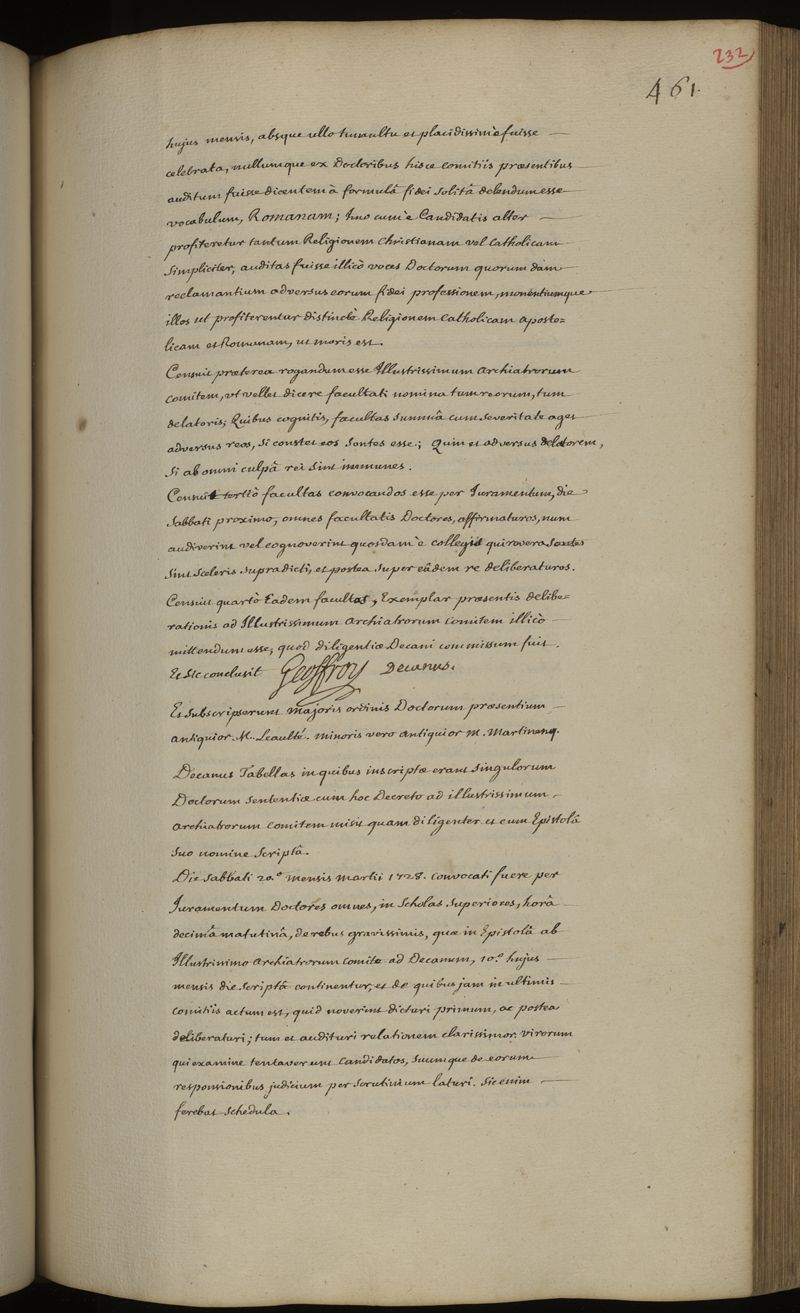 232
461.
hujus mensis, absque ullo tumultu et placidissimè fuisse
celebrata, nullumque ex Doctoribus hisce comitiis præsentibus
auditum fuisse dicentem à formulâ fidei solitâ delendum esse
vocabulum, Romanam; Imo cum è Candidatis alter
profiteretur tantum Religionem Christianam vel Catholicam
simpliciter, auditas fuisse illicò voces Doctorum quorumdam
reclamantium adversus eorum fidei professionem, monentiumque
illos ut profiterentur distinctè Religionem Catholicam aposto=
licam et Romanam, ut moris est.
Censuit præterea rogandum esse Illustrissimum archiatrorum
comitem, ut vellet dicere facultati nomina tum reorum, tum
delatoris; Quibus cognitis, facultas summâ cum severitate aget
adversus reos, si constet eos sontes esse; Quin et adversus delatorem,
si ab omni culpâ rei sint immunes.
Censuit tertiò facultas convocandos esse per Juramentum, die
sabbati proximo, omnes facultatis Doctores, affirmaturos, num
audiverint vel cognoverint quosdam è collegis qui revera sontes
sint sceleris supradicti, et postea super eâdem re deliberaturos.
Censuit quartò Eadem facultas, Exemplar præsentis delibe=
rationis ad Illustrissimum archiatrorum comitem illicò
mittendum esse, quod diligentiæ Decani commissum fuit.
Et sic conclusit Geoffroy Decanus.
Et subscripserunt majoris ordinis Doctorum præsentium
antiquior M. Leaulté. minoris vero antiquior M. Martinenq.
Decanus Tabellas in quibus inscriptæ erant singulorum
Doctorum sententiæ cum hoc Decreto ad illustrissimum
archiatrorum comitem misit quam diligenter et cum Epistolâ
suo nomine scriptâ.
Die sabbati 20.º mensis martii 1728. convocati fuere per
Juramentum Doctores omnes, in scholas superiores, horâ
decimâ matutinâ, de rebus gravissimis, quæ in Epistolâ ab
Illustrissimo archiatrorum comite ad Decanum, 10.º hujus
mensis die scriptâ continentur, et de quibus jam in ultimis
comitiis actum est, quid noverint dicturi primum, ac postea
deliberaturi; tum et audituri relationem clarissimor. virorum
qui examine tentaverunt Candidatos, suumque de eorum
responsionibus judicium per scrutinium laturi. sic enim
ferebat schedula.